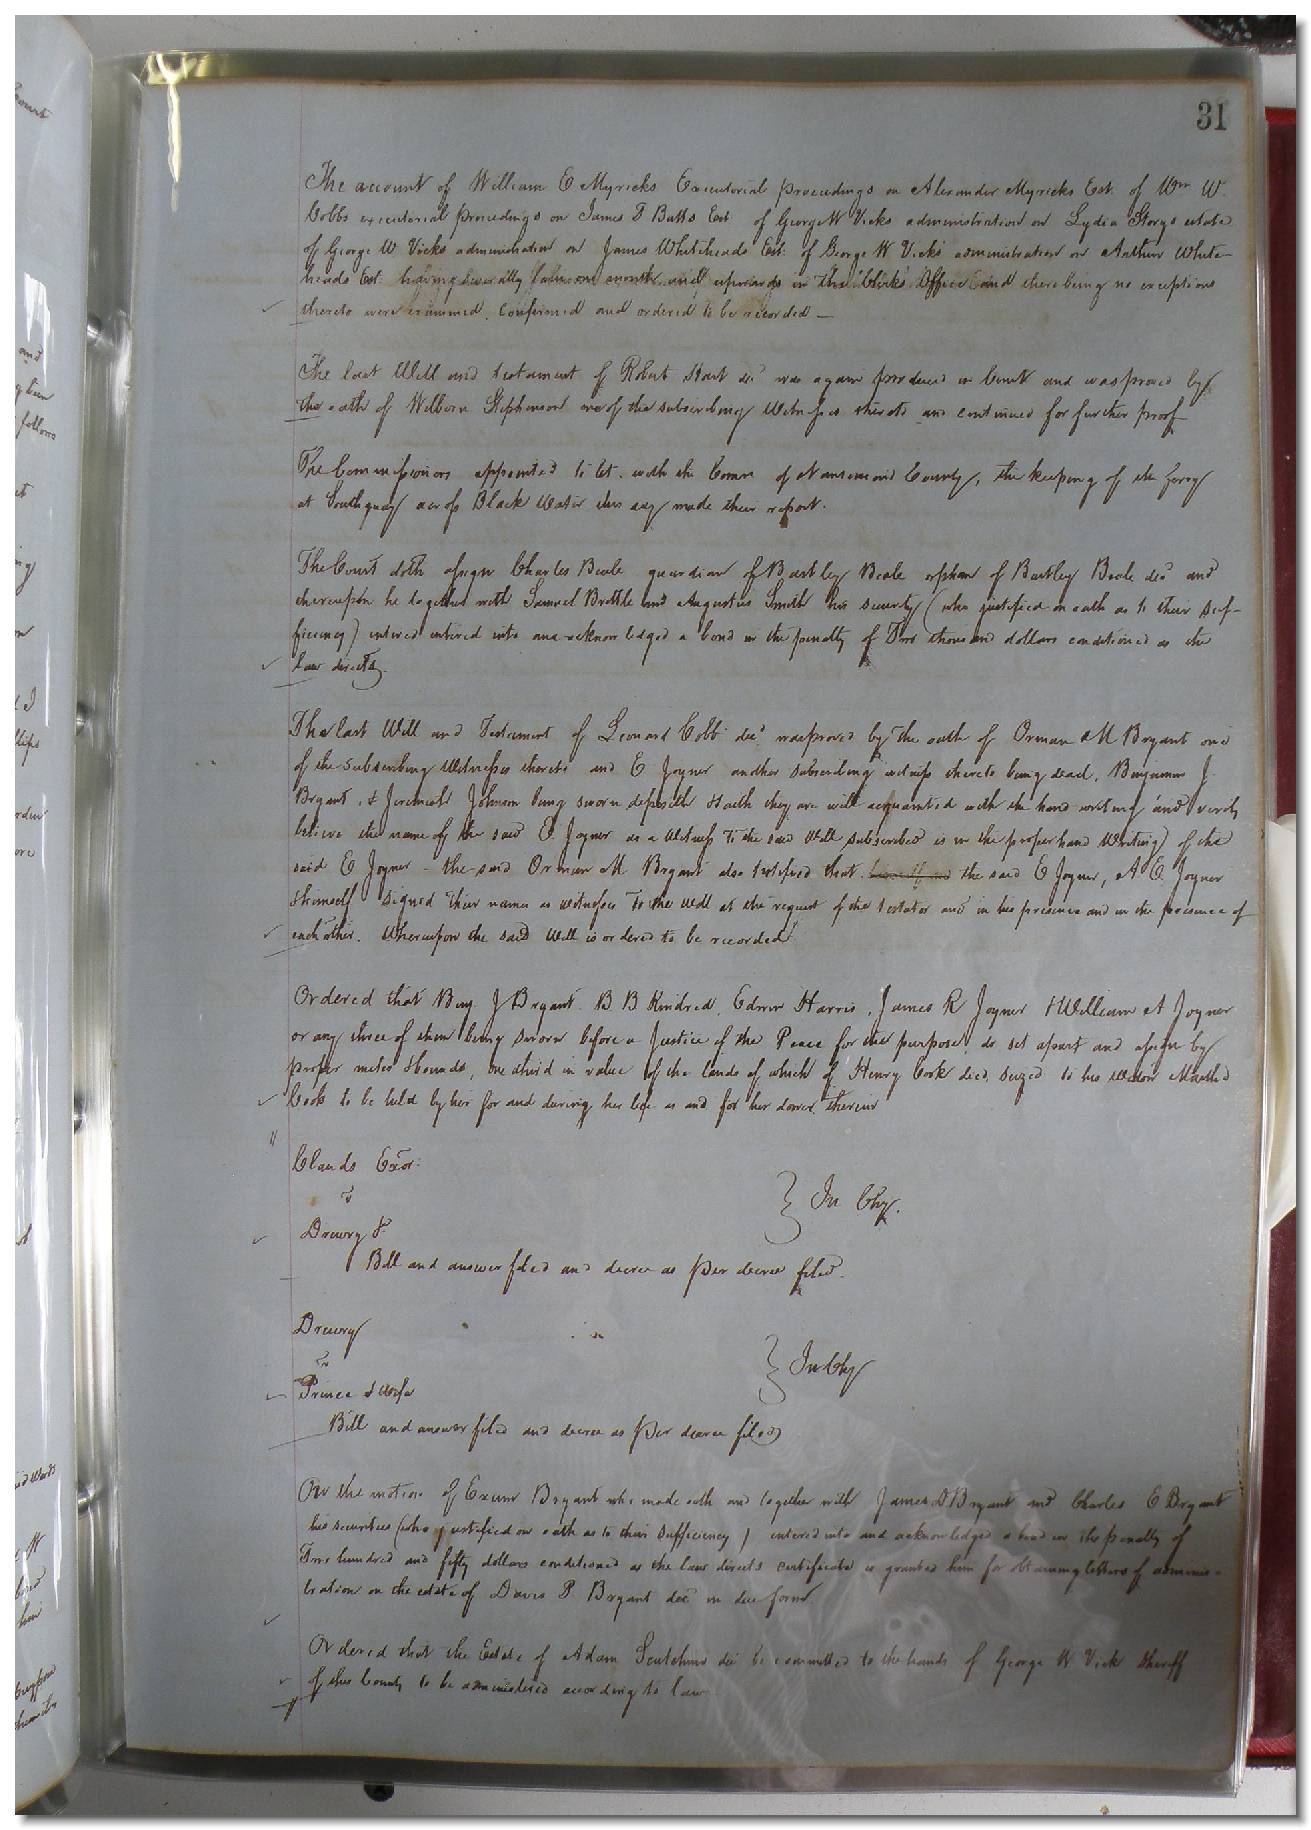 31
The account of William E Myricks Executorial proceedings on Alexander Myricks Est. of Wm W.
Cobbs executorial proceedings on James T Batts Est of George W Vicks administration on Lydia Storys estate
of George W Vicks administration on James Whiteheads Est. of George W Vicks administration on Arthur White-
heads Est. having severally lain one month and upwards in the Clerks Office and there being no exceptions
thereto were examined, confirmed and ordered to be recorded —
The last Will and testament of Robert Hart decd was again produced in Court and was proved by
the oath of Welborn Stephenson one of the subscribing Witnesses thereto and continued for further proof
The Commissioners appointed to let with the Comm of Nansemond County, the keeping of the ferry
at Southquay across Black Water this day made their report.
The Court doth assign Charles Beale guardian of Bartley Beale orphan of Bartley Beale decd and
thereupon he together with Samuel Brittle and Augustus Smith his security (who justified on oath as to their suf-
ficiency) entered entered into and acknowledged a bond in the penalty of Two thousand dollars conditioned as the
law directs.
The last Will and Testament of Leonard Cobb decd was proved by the oath of Orman M Bryant one
of the subscribing Witnesses thereto and E Joyner another subscribing witness thereto being dead, Benjamin J.
Bryant & Jeremiah Johnson being sworn deposeth & saith they are well acquainted with the hand writing and verily
believe the name of the said E. Joyner as a Witness to the said Will subscribed is in the proper hand Writing of the
said E Joyner - the said Orman M Bryant also testified that the said E Joyner, A E. Joyner
& himself signed their names as witnesses to the Will at the request of the testator and in his presence and in the presence of
each other. Whereupon the said Will is ordered to be recorded
Ordered that Benj J Bryant. B B Kindred, Edwin Harris, James R Joyner & William A Joyner
or any three of them being sworn before a Justice of the Peace for the purpose, do set apart and assign by
proper metes & bounds, one third in value of the lands of which of Henry Cook died seized to his Widow Martha
Cook to be held by her for and during her life as and for her dower therein
Clauds Exor:
vs
Drewry &
} In Chy.
Bill and answer filed and decree as per decree filed.
Drewry
vs
Prince & Wife
} In Chy
Bill and answer filed and decree as per decree filed
On the motion of Exum Bryant who made oath and together with James D Bryant and Charles E Bryant
his securities (who justified on oath as to their sufficiency) entered into and acknowledged a bond in the penalty of
Two hundred and fifty dollars conditioned as the law directs certificate is granted him for obtaining letters of adminis-
tration on the estate of Davis P. Bryant decd in due form.
Ordered that the Estate of Adam Scutchins decd be committed to the hands of George W Vick Sheriff
of this County to be administered according to law